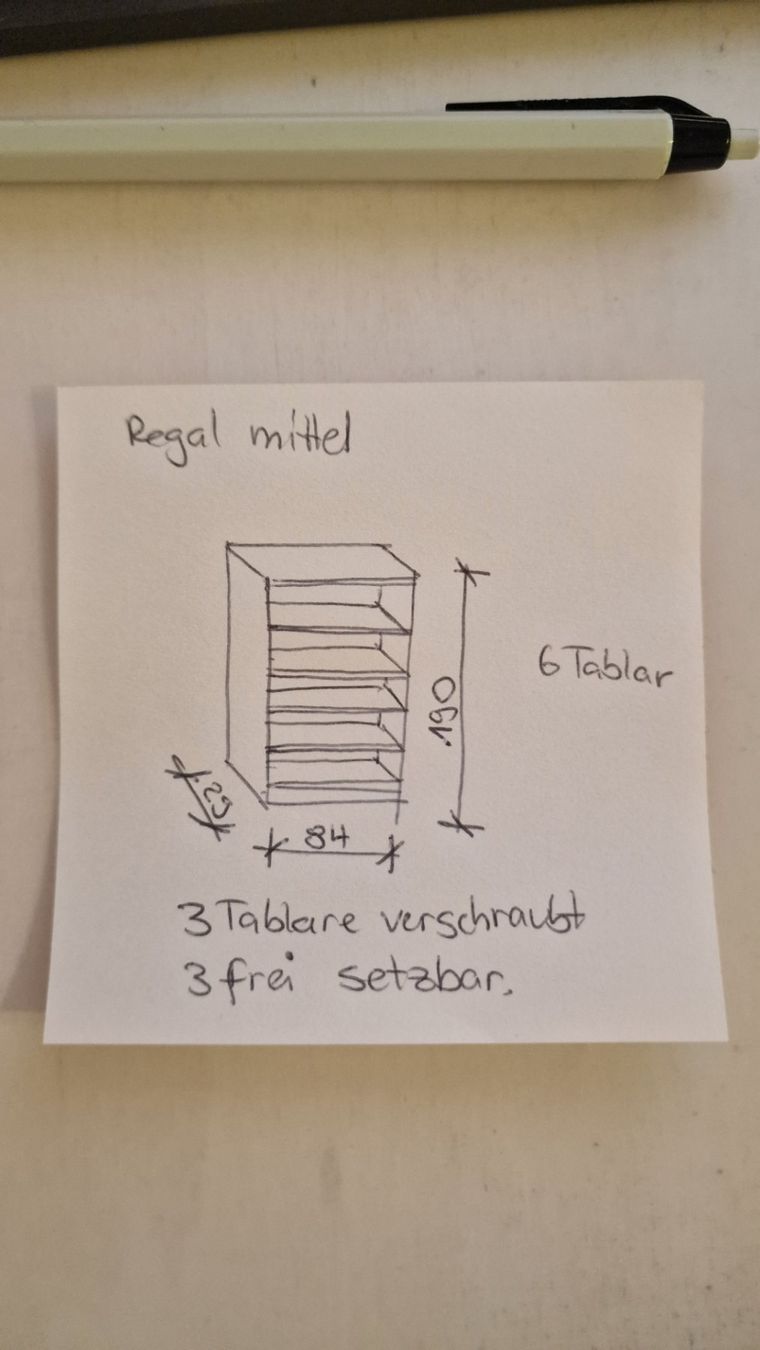 Regal mittel
6 Tablar
190
29
84
3 Tablare verschraubt
3 frei setzbar.